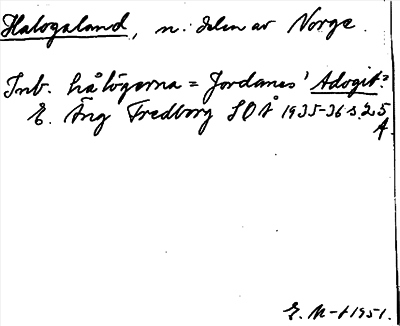 Halogaland, n. delen av Norge.
Inb. hålögerna = Jordanes' Adogit?
E. Äng Fredborg SOÅ 1935-36 s. 25
A.
E. M-t 1951.